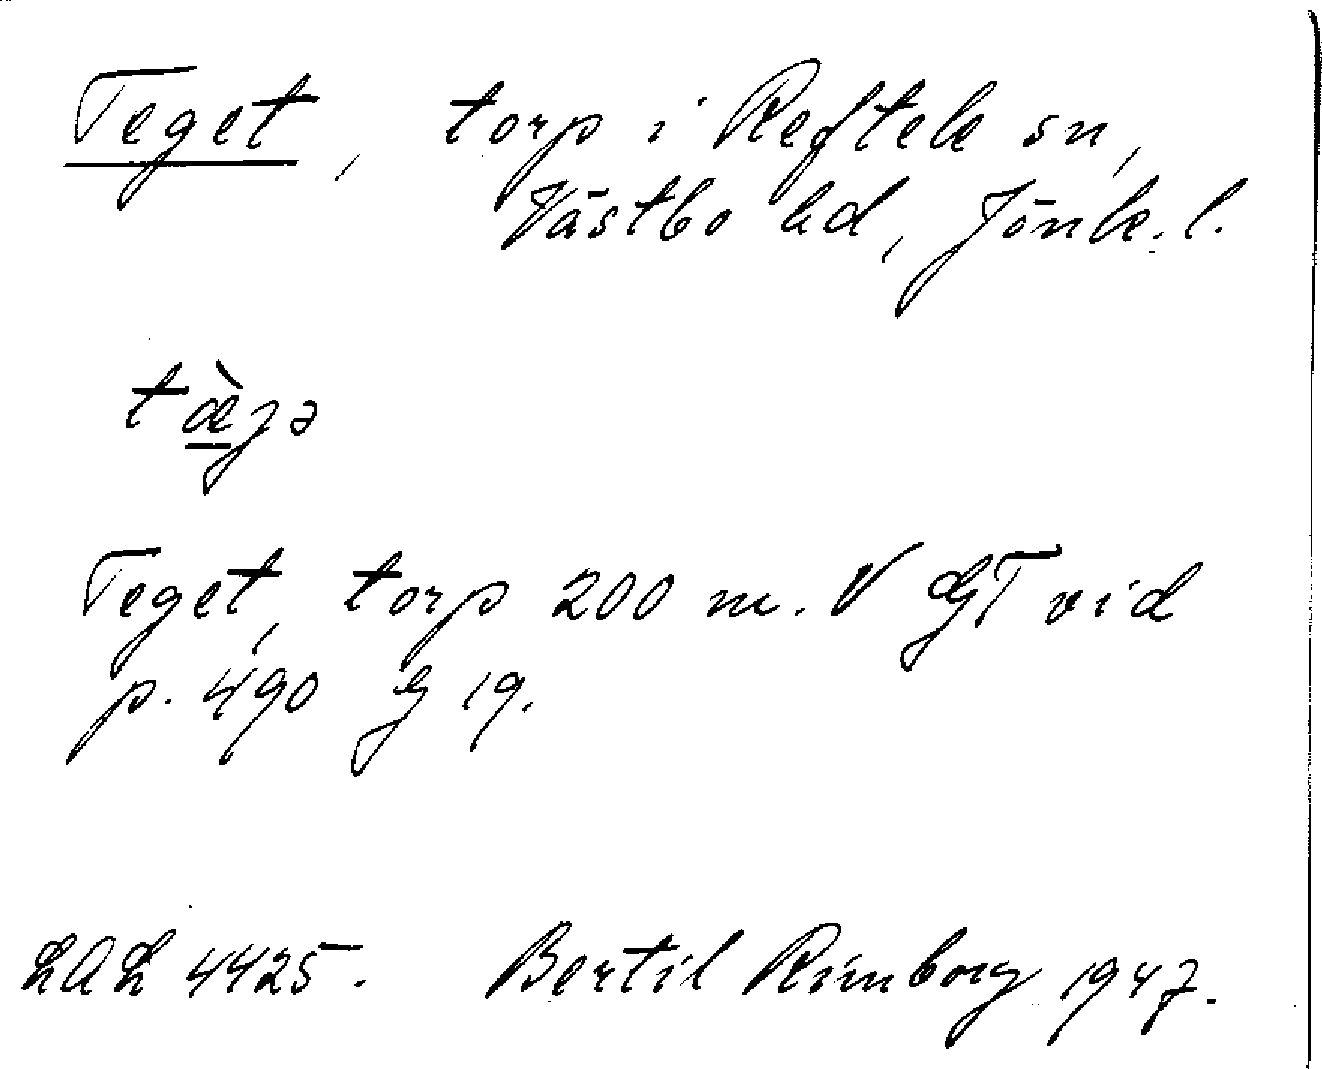 Teget, torp i Reftele sn,
Västbo hd, Jönk. l.
tæ̀jə
Teget, torp 200 m. V GT vid
p. 490 G 19.
LAL 4425. Bertil Rimborg 1947.